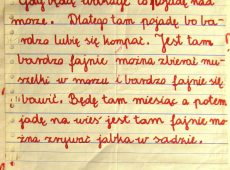 Gdy będą wakacje to pojadę nad
morze. Dlatego tam pojadę bo ba-
rdzo lubię się kompat. Jest tam
bardzo fajnie można zbierać mu-
szelki w morzu i bardzo fajnie się
bawić. Będę tam miesiąc a potem
jadę na wieś jest tam fajnie mo-
żna zrywać jabka w sadzie.